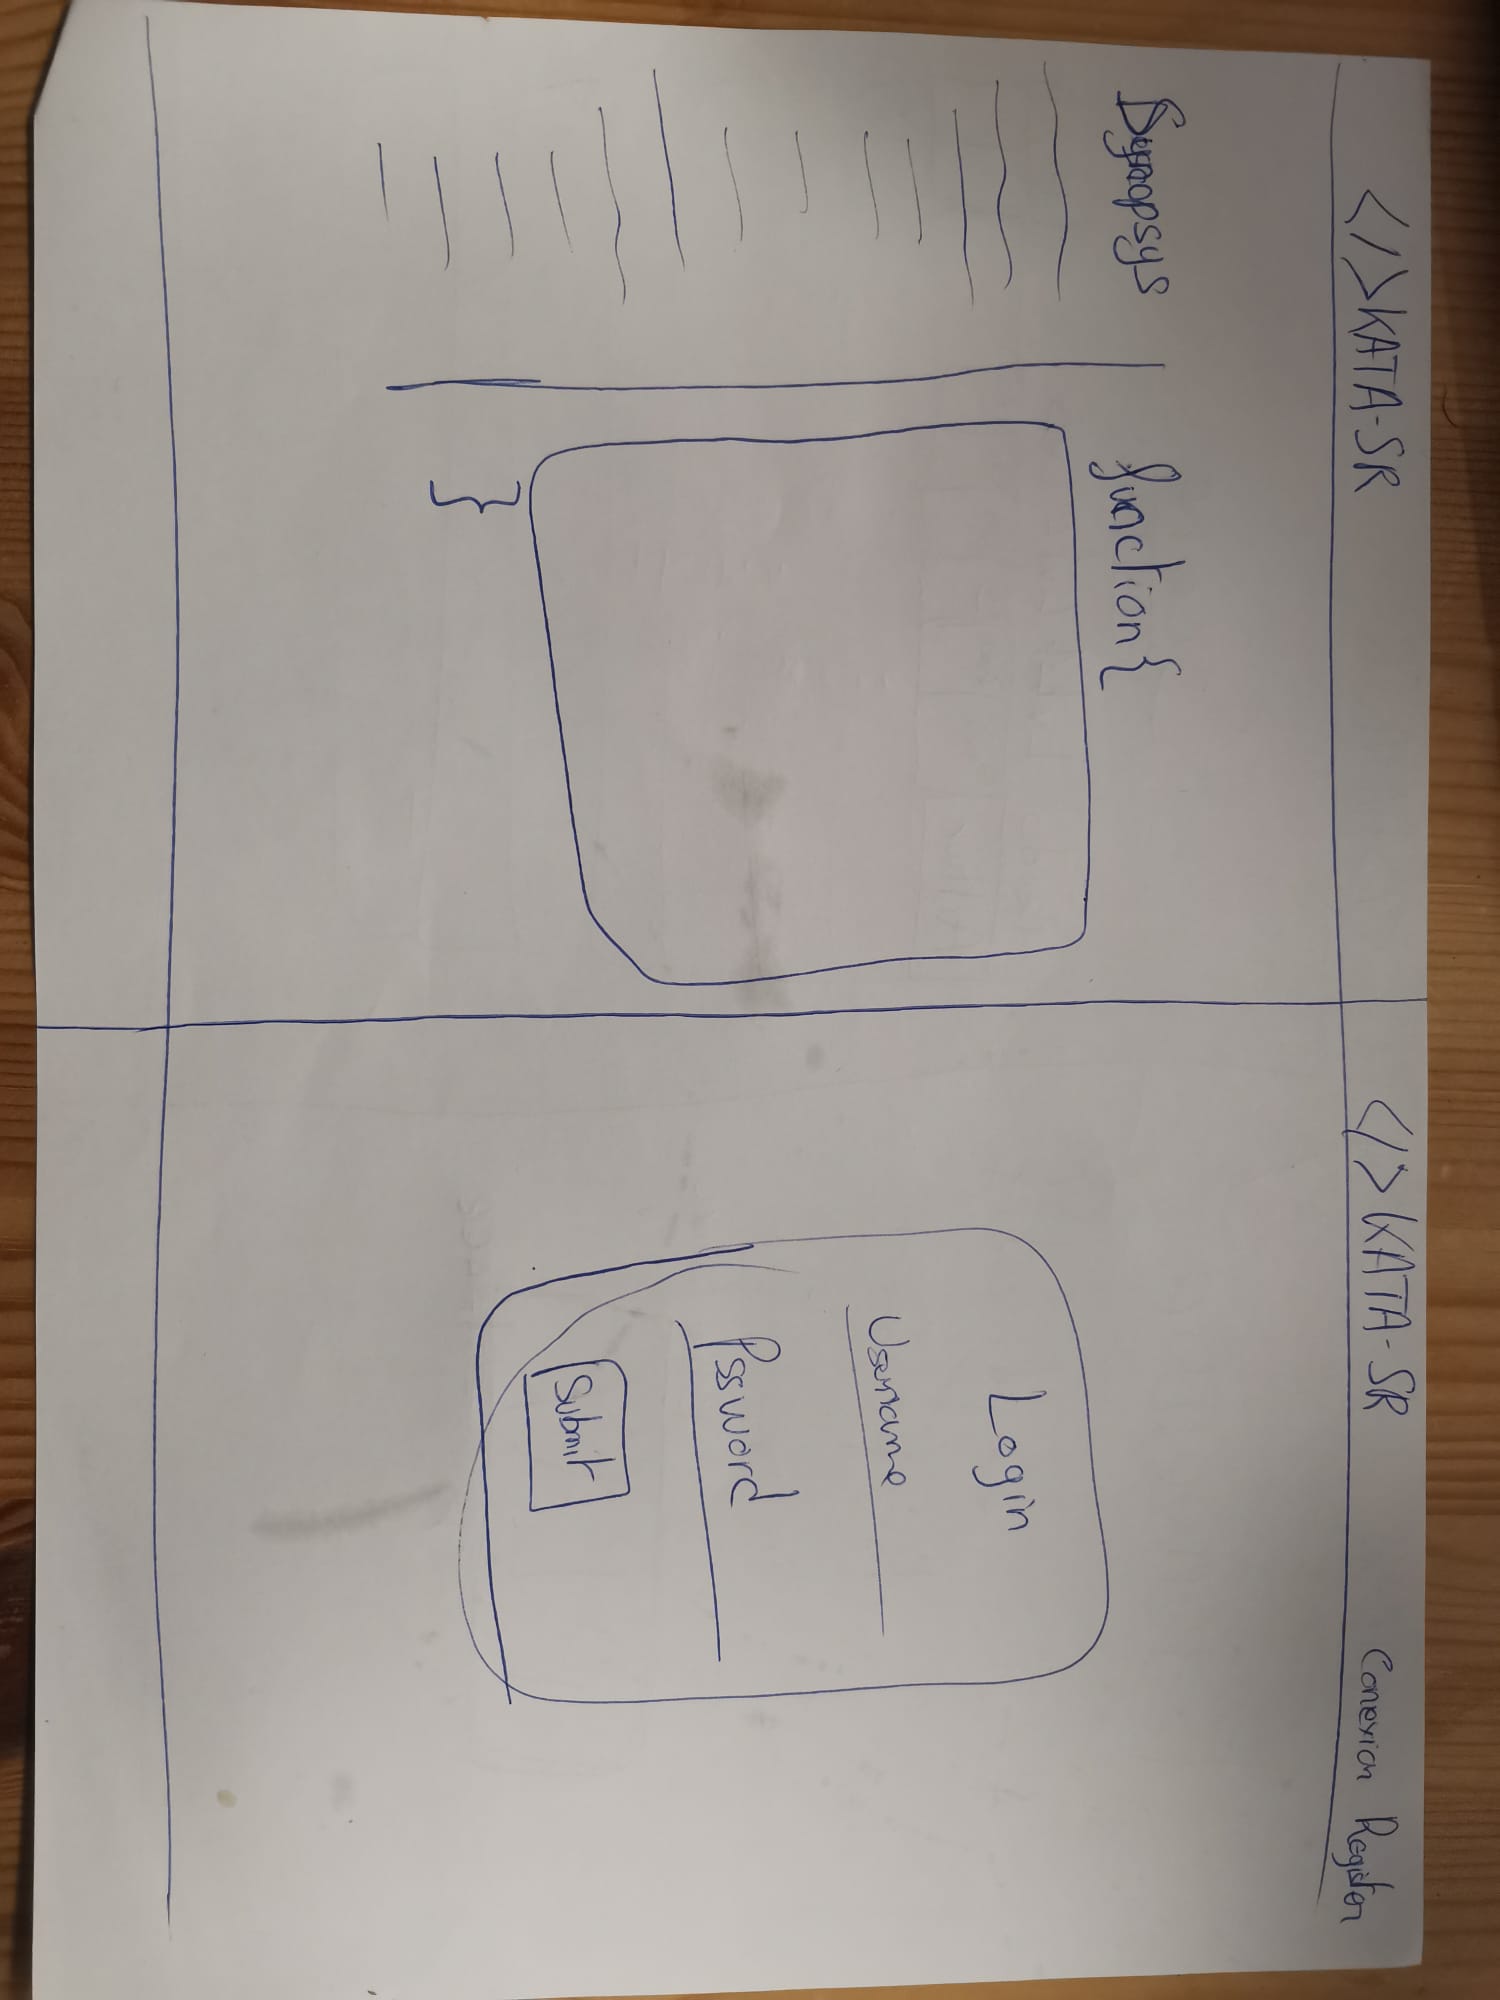 </>KATA-SR
Synopsys
function{
}
</>KATA-SR
Conexion Register
Login
Username
Pssword
Submit